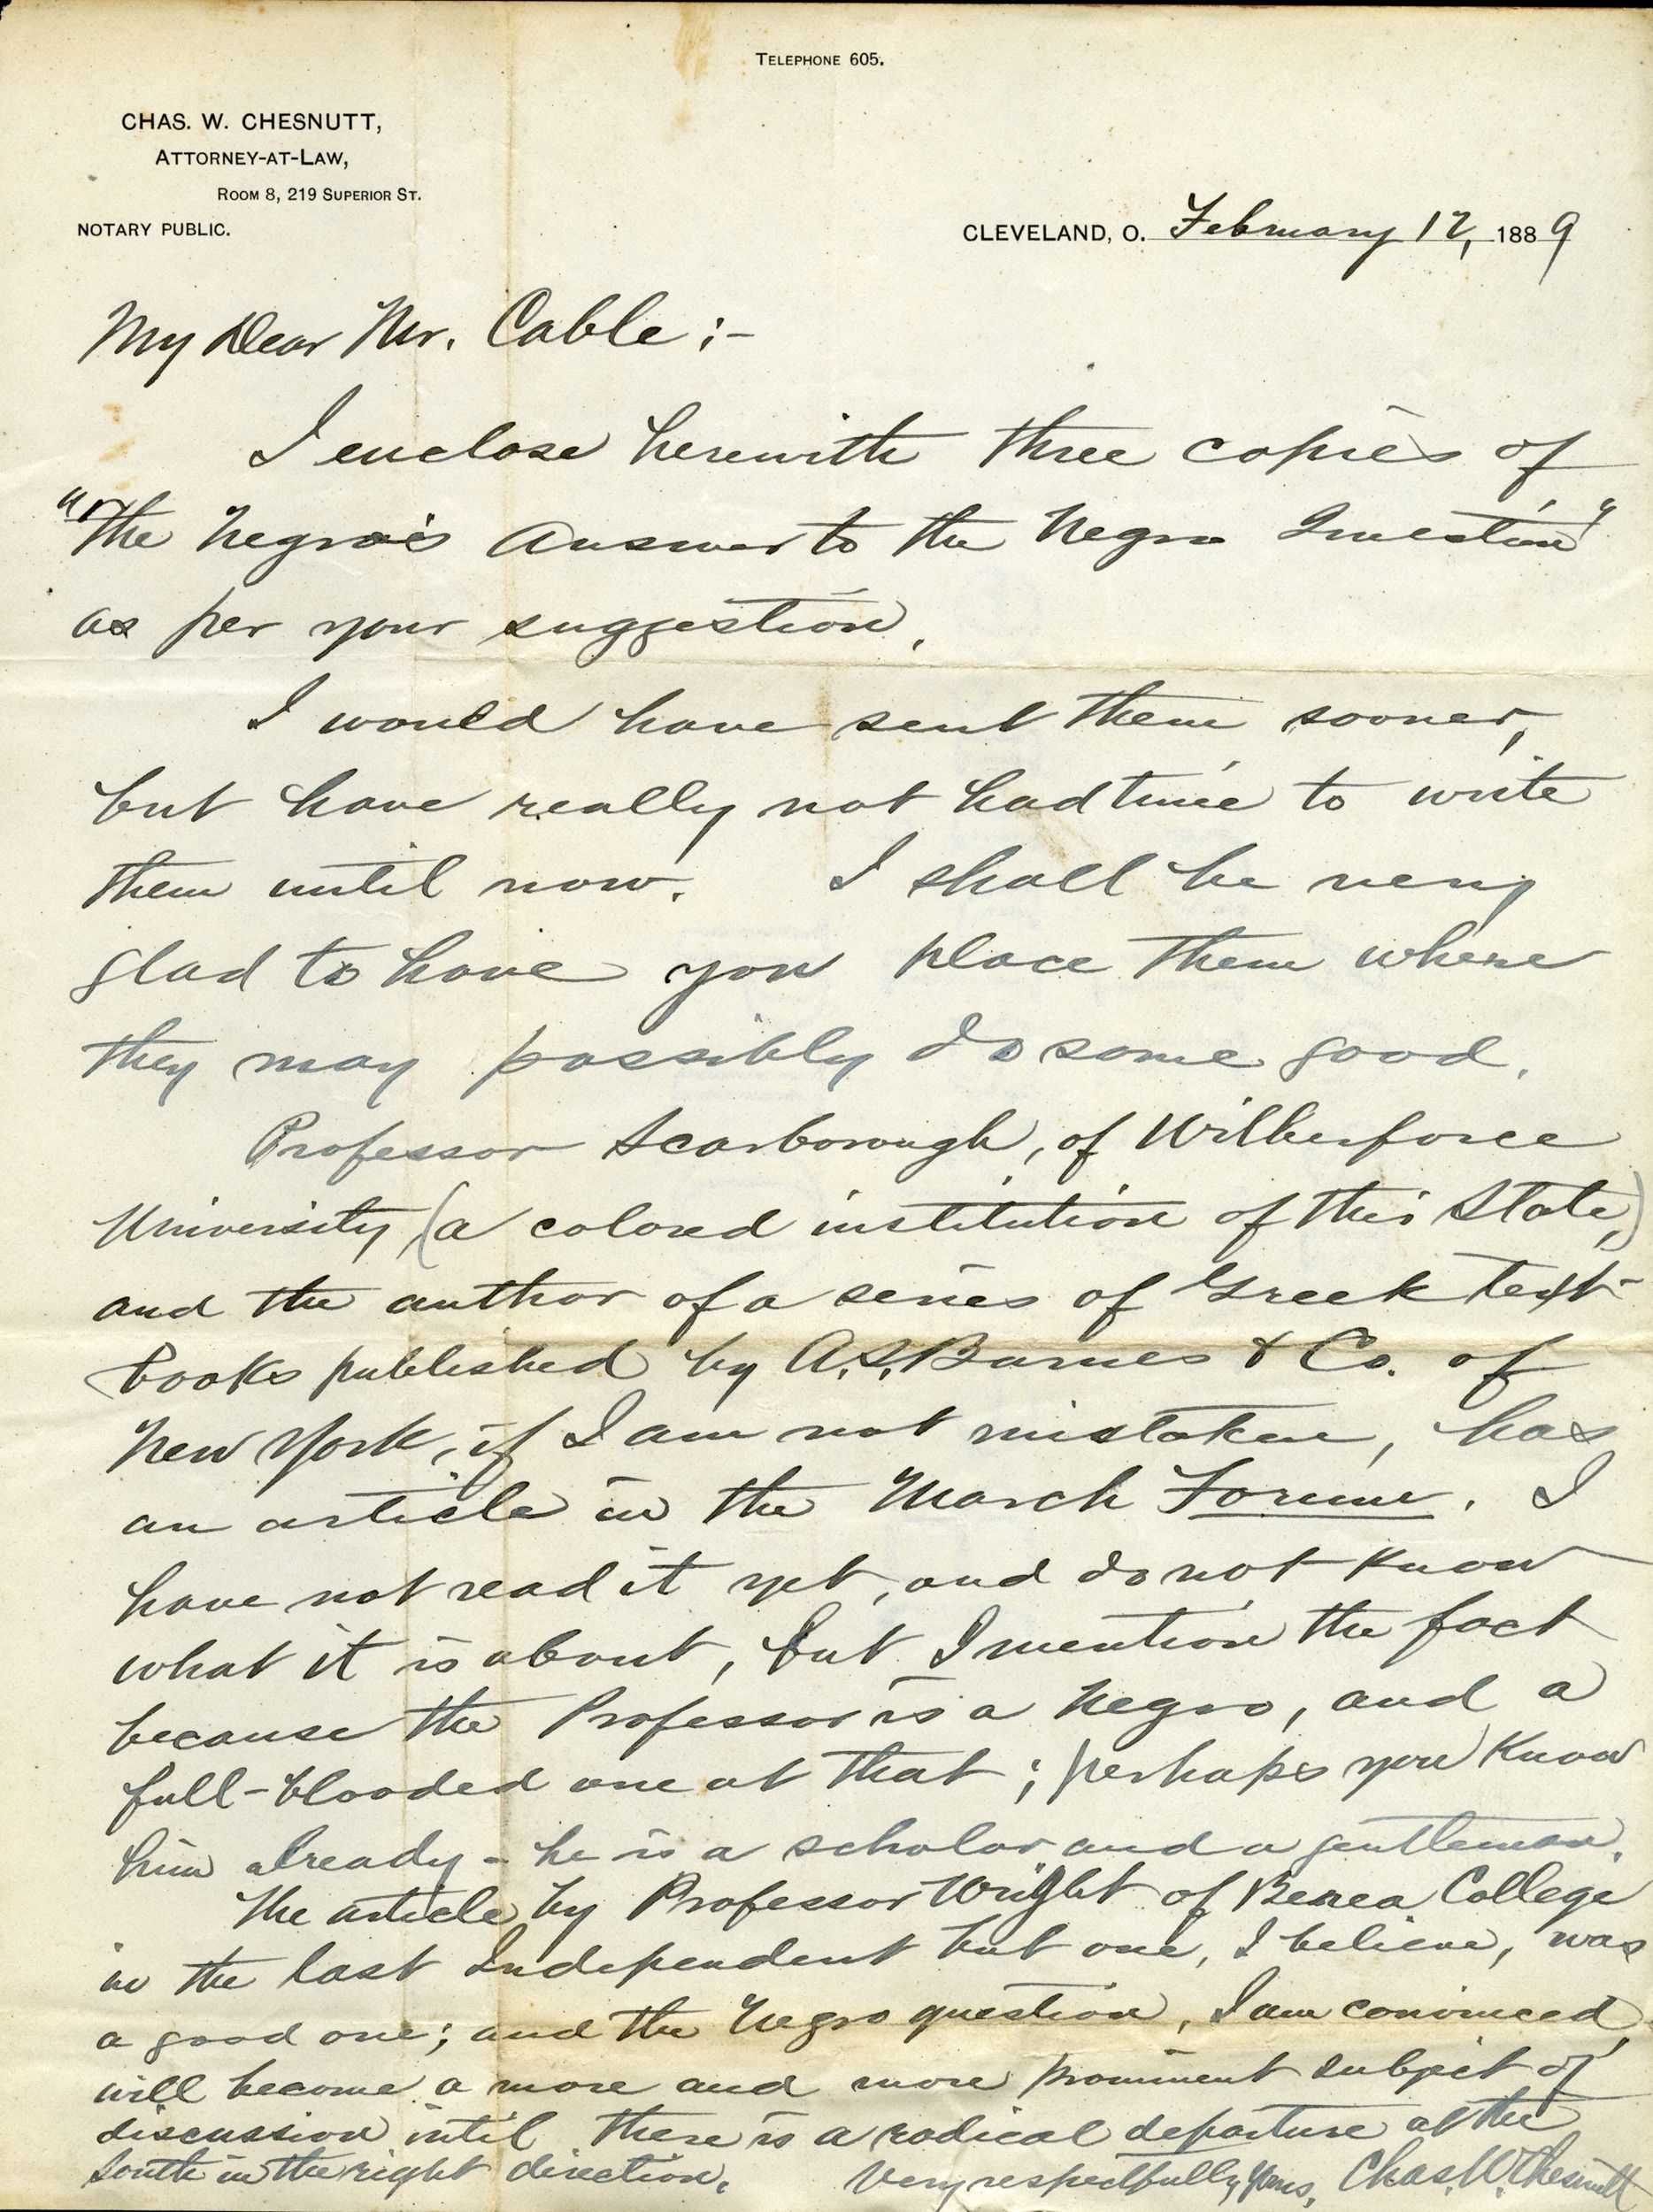 TELEPHONE 605.
CHAS. W. CHESNUTT,
ATTORNEY-AT-LAW,
ROOM 8, 219 SUPERIOR ST.
NOTARY PUBLIC.
CLEVELAND, O. February 12, 1889
My Dear Mr. Cable:-
I enclose herewith three copies of
"The Negro's Answer to the Negro Question"
as per your suggestion.
I would have sent them sooner,
but have really not had time to write
them until now. I shall be very
glad to have you place them where
they may possibly do some good.
Professor Scarborough, of Wilberforce
University (a colored institution of this State,)
and the author of a series of Greek text-
books published by A.S. Barnes & Co. of
New York, if I am not mistaken, has
an article in the March Forum. I
have not read it yet, and do not know
what it is about, but I mention the fact
because the Professor is a Negro, and a
full-blooded one at that; perhaps you know
him already - he is a scholar and a gentleman.
The article by Professor Wright of Berea College
in the last Independent but one, I believe, was
a good one; and the Negro question, I am convinced,
will become a more and more prominent subject of
discussion until there is a radical departure at the
South in the right direction.
Very respectfully yours, Chas. W. Chesnutt